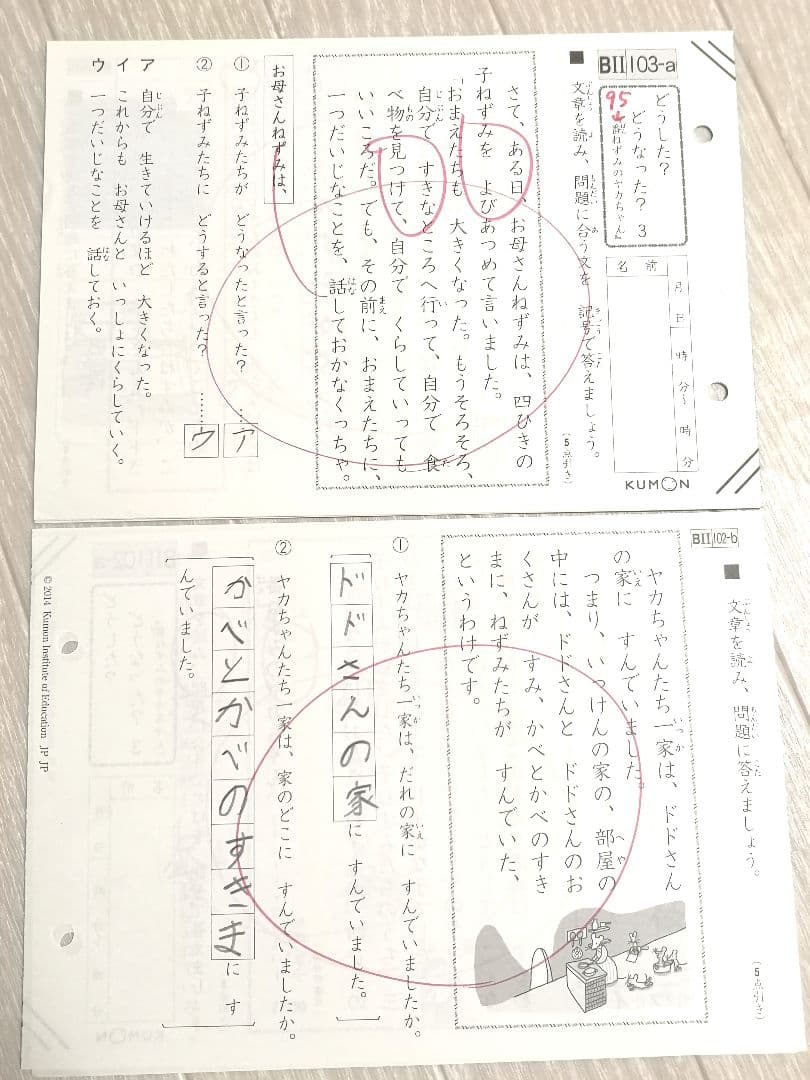 BII 103-a
どうした?
どうなった? 3
95
『ねずみのヤカちゃん』
名前
月 日
時 分〜 時 分
KUMON
■ 文章を読み、問題に合う文を 記号で答えましょう。
ぶんしょう よ もんだい あ きごう こた
(5点引き)
さて、ある日、お母さんねずみは、四ひきの
子ねずみを よびあつめて言いました。
「おまえたちも 大きくなった。もうそろそろ、
自分で すきなところへ行って、自分で 食
じぶん い た
べ物を見つけて、自分で くらしていっても
もの
いいころだ。でも、その前に、おまえたちに、
まえ
一つだいじなことを、話しておかなくっちゃ。
はな
お母さんねずみは、
① 子ねずみたちが どうなったと言った? …… ア
② 子ねずみたちに どうすると言った? …… ウ
ア 自分で 生きていけるほど 大きくなった。
じぶん
イ これからも お母さんと いっしょにくらしていく。
ウ 一つだいじなことを 話しておく。
はな
BII 102-b
■ 文章を読み、問題に答えましょう。
ぶんしょう よ もんだい こた
(5点引き)
ヤカちゃんたち一家は、ドドさん
いっか
の家に すんでいました。
いえ
つまり、いっけんの家の、部屋の
へや
中には、ドドさんと ドドさんのお
くさんが すみ、かべとかべのすき
まに、ねずみたちが すんでいた、
というわけです。
① ヤカちゃんたち一家は、だれの家に すんでいましたか。
いっか いえ
ドドさんの家に すんでいました。
② ヤカちゃんたち一家は、家のどこに すんでいましたか。
かべとかべのすきまに す
んでいました。
© 2014 Kumon Institute of Education JP JP